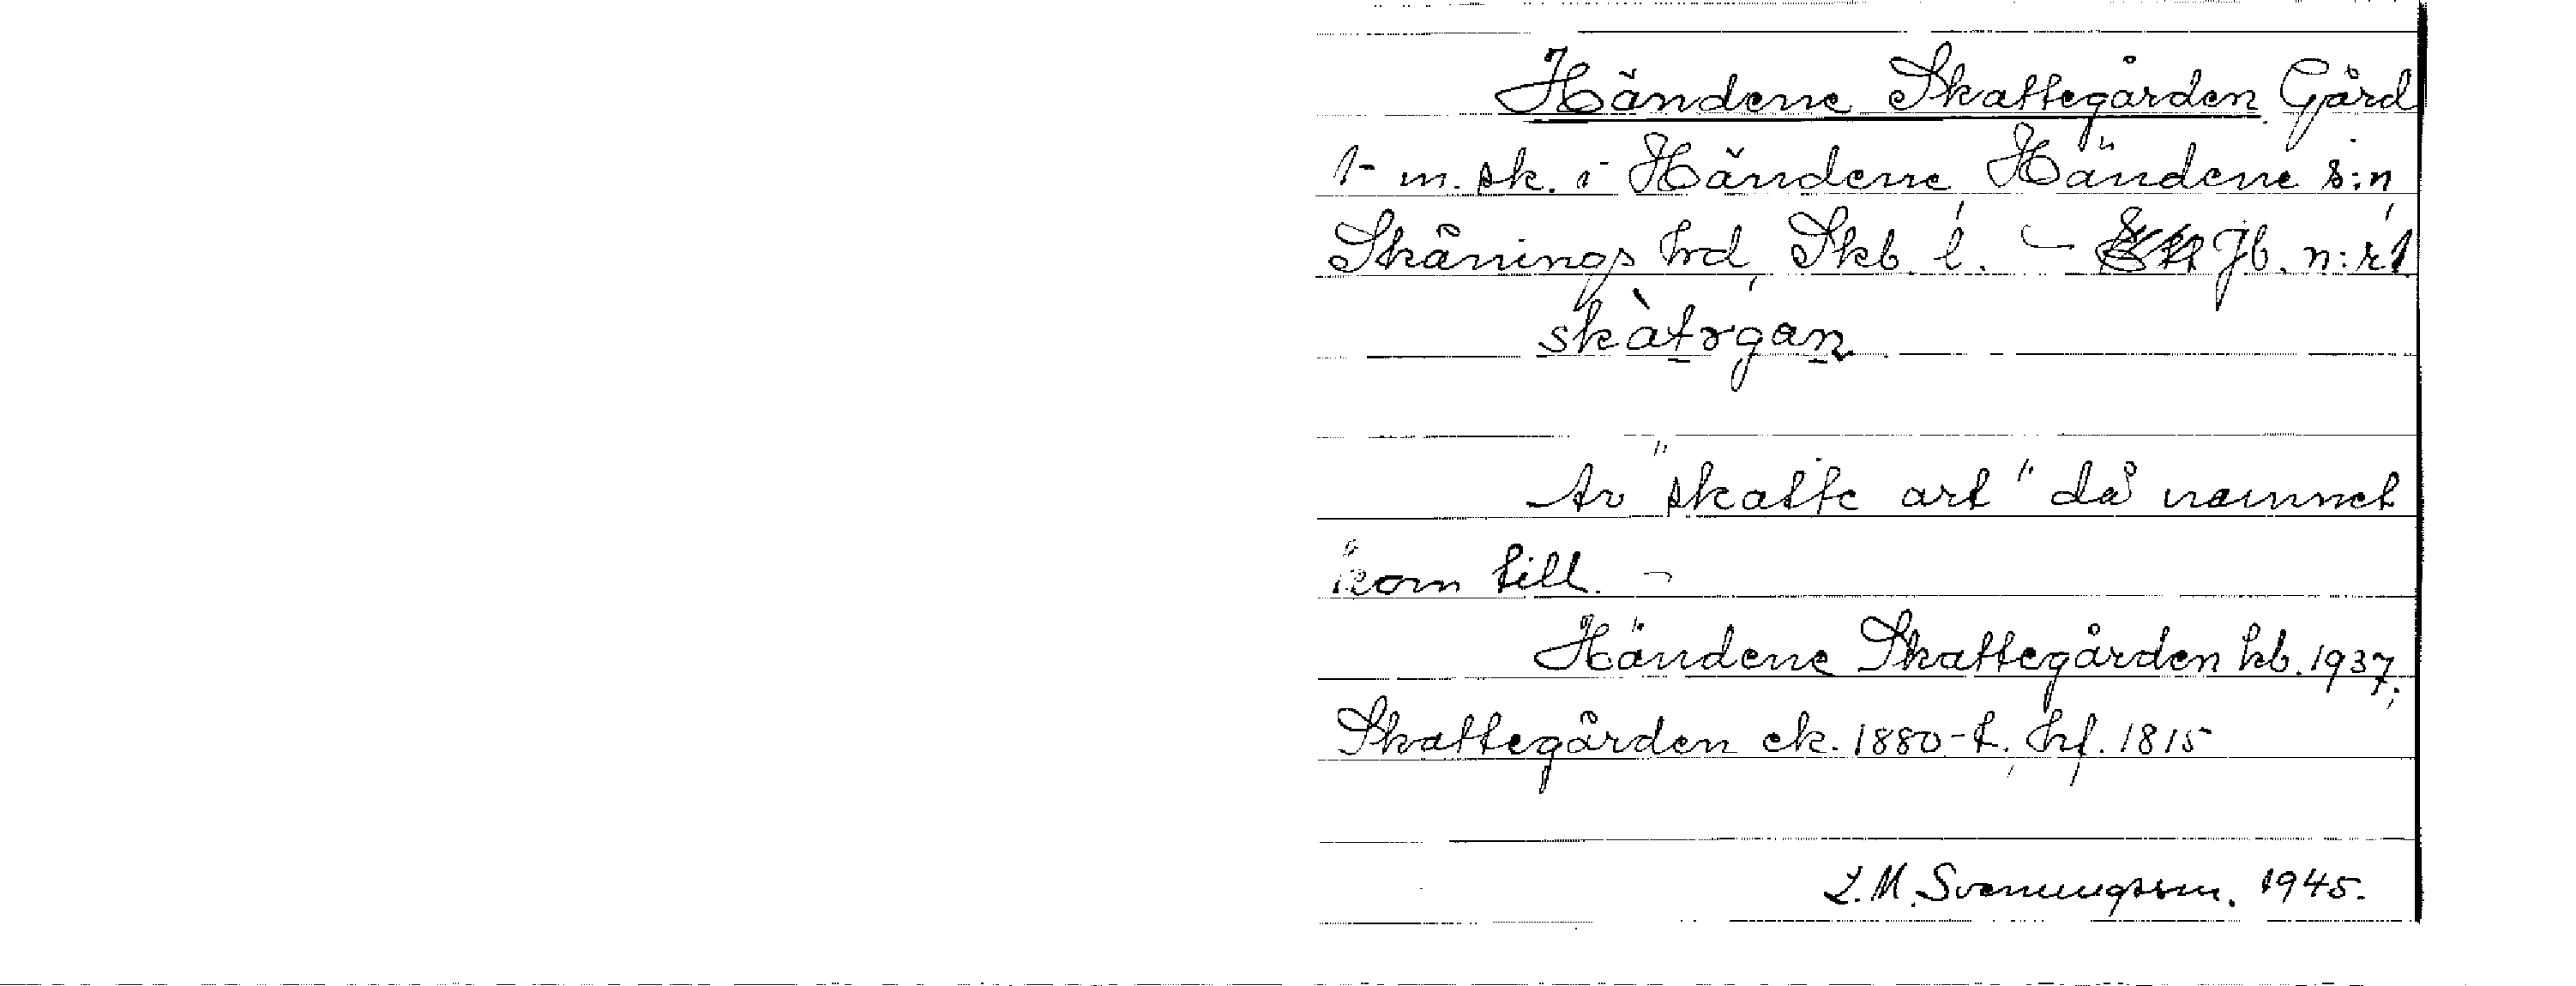 Händene Skattegården Gård
1 m. sk. i Händene Händene s:n,
Skånings hrd, Skb. l. – Jb. n:r 1
skàtrgan
Av "skatte art" då namnet
kom till. –
Händene Skattegården kb. 1937;
Skattegården ek. 1880-t., hf. 1815
L.M. Svenungsson. 1945.